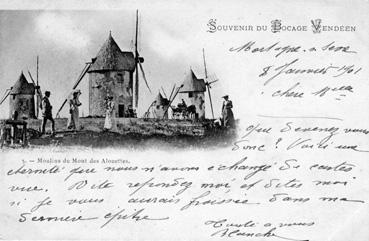 SOUVENIR DU BOCAGE VENDÉEN
Mortagne s. Sèvre
8 Janvier 1901
chère
que devenez vous
donc ? Voilà une
5. — Moulins du Mont des Alouettes.
éternité que nous n'avons échangé de cartes
vues. Vite répondez moi et dites moi
si je vous aurais froissée dans ma
dernière épître
Toute à vous
Blanche